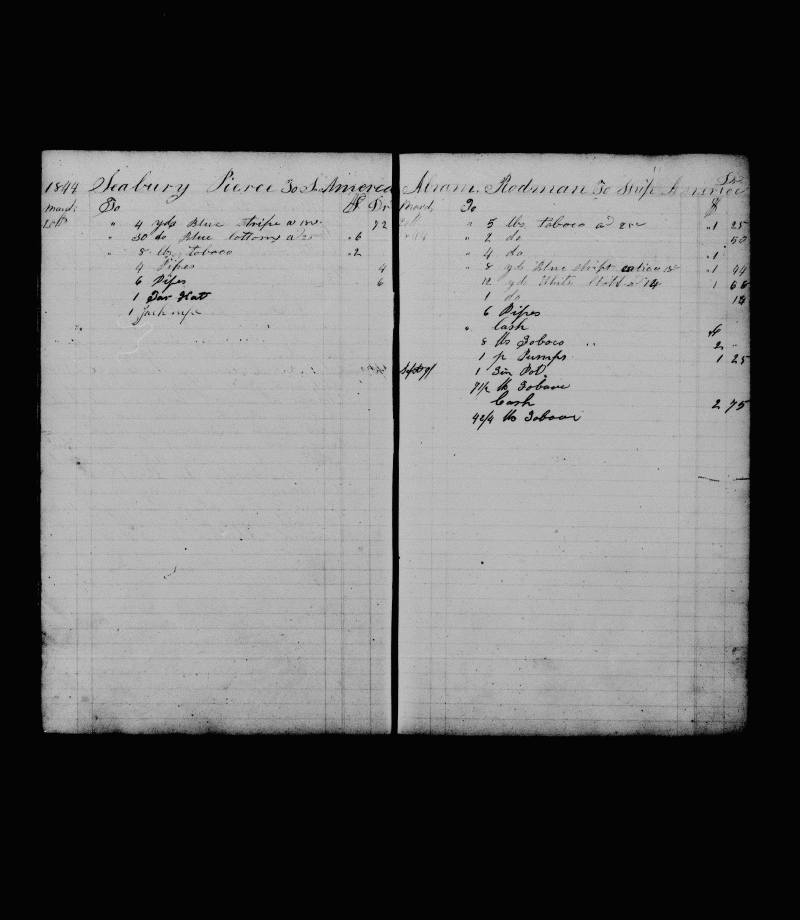 1844 Seabury Pierce To S. America
March To $ Dr
25th " 4 yds Blue Stripe a 72
" 30 do Blue Cottons a 25 " 6
" 8 lbs tobaco " 2
4 Pipes 4
6 Pipes 6
1 Tar Hat
1 Jack
Abram Rodman To Ship America Dr
March To $
" 5 lbs tobaco a 25c " 1 25
" 2 do 50
" 4 do " 1
" 8 yds Blue Stript 18 " 1 44
12 yds White 14 1 68
1 do 12
6 Pipes
" Cash
8 lbs Tobaco " 2 "
1 p Pumps 1 25
1 Tin Pot
7 1/2 lb Tobaco
Cash 2 75
lbs Tobaco